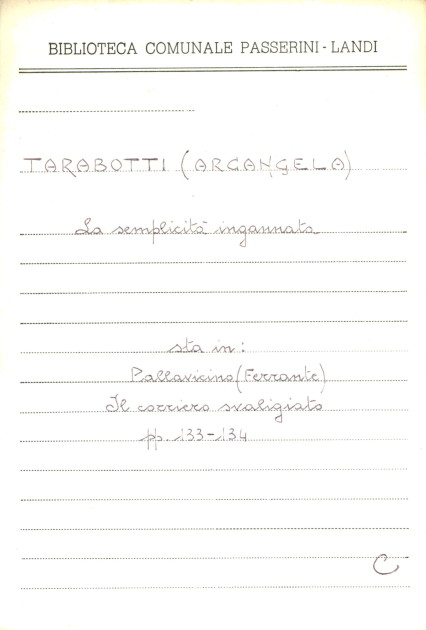 BIBLIOTECA COMUNALE PASSERINI-LANDI
TARABOTTI (ARCANGELA)
La semplicità ingannata
sta in:
Pallavicino (Ferrante)
Il corriero svaligiato
pp. 133-134
C